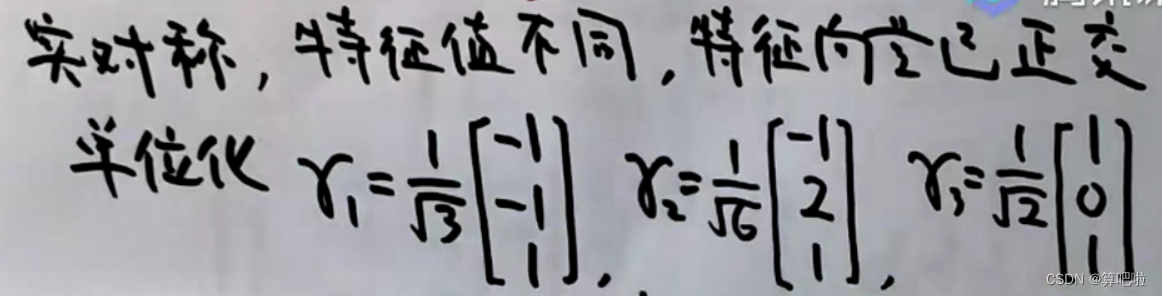 实对称，特征值不同，特征向量已正交
单位化 γ₁=1/√3[-1 -1 1]，γ₂=1/√6[-1 2 1]，γ₃=1/√2[1 0 1]
CSDN @算吧啦